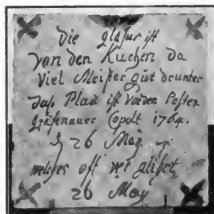 Die glasur ist
von den Kuchen da
Viel Meister gut drunter
das Plad ist von den Posten
Grafenauer Copolt 1764.
26 May
welcher oft ver glihrt
26 May